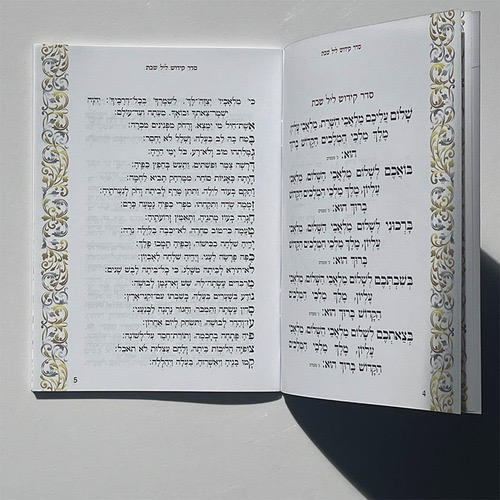 סדר קידוש ליל שבת
סדר קידוש ליל שבת
שָׁלוֹם עֲלֵיכֶם מַלְאֲכֵי הַשָּׁרֵת, מַלְאֲכֵי עֶלְיוֹן,
מֶלֶךְ מַלְכֵי הַמְּלָכִים הַקָּדוֹשׁ בָּרוּךְ
הוּא: ג' פעמים
בּוֹאֲכֶם לְשָׁלוֹם מַלְאֲכֵי הַשָּׁלוֹם, מַלְאֲכֵי
עֶלְיוֹן, מֶלֶךְ מַלְכֵי הַמְּלָכִים הַקָּדוֹשׁ
בָּרוּךְ הוּא: ג' פעמים
בָּרְכוּנִי לְשָׁלוֹם מַלְאֲכֵי הַשָּׁלוֹם, מַלְאֲכֵי
עֶלְיוֹן, מֶלֶךְ מַלְכֵי הַמְּלָכִים הַקָּדוֹשׁ
בָּרוּךְ הוּא: ג' פעמים
בְּשִׁבְתְּכֶם לְשָׁלוֹם מַלְאֲכֵי הַשָּׁלוֹם, מַלְאֲכֵי
עֶלְיוֹן, מֶלֶךְ מַלְכֵי הַמְּלָכִים
הַקָּדוֹשׁ בָּרוּךְ הוּא: ג' פעמים
בְּצֵאתְכֶם לְשָׁלוֹם מַלְאֲכֵי הַשָּׁלוֹם, מַלְאֲכֵי
עֶלְיוֹן, מֶלֶךְ מַלְכֵי הַמְּלָכִים
הַקָּדוֹשׁ בָּרוּךְ הוּא: ג' פעמים
4
סדר קידוש ליל שבת
כִּי מַלְאָכָיו יְצַוֶּה־לָּךְ, לִשְׁמָרְךָ בְּכָל־דְּרָכֶיךָ: יְהֹוָה
יִשְׁמָר־צֵאתְךָ וּבוֹאֶךָ, מֵעַתָּה וְעַד־עוֹלָם:
אֵשֶׁת חַיִל מִי יִמְצָא, וְרָחֹק מִפְּנִינִים מִכְרָהּ:
בָּטַח בָּהּ לֵב בַּעְלָהּ, וְשָׁלָל לֹא יֶחְסָר:
גְּמָלַתְהוּ טוֹב וְלֹא־רָע, כֹּל יְמֵי חַיֶּיהָ:
דָּרְשָׁה צֶמֶר וּפִשְׁתִּים, וַתַּעַשׂ בְּחֵפֶץ כַּפֶּיהָ:
הָיְתָה כָּאֳנִיּוֹת סוֹחֵר, מִמֶּרְחָק תָּבִיא לַחְמָהּ:
וַתָּקָם בְּעוֹד לַיְלָה, וַתִּתֵּן טֶרֶף לְבֵיתָהּ וְחֹק לְנַעֲרֹתֶיהָ:
זָמְמָה שָׂדֶה וַתִּקָּחֵהוּ, מִפְּרִי כַפֶּיהָ נָטְעָה כָּרֶם:
חָגְרָה בְעוֹז מָתְנֶיהָ, וַתְּאַמֵּץ זְרוֹעֹתֶיהָ:
טָעֲמָה כִּי־טוֹב סַחְרָהּ, לֹא־יִכְבֶּה בַלַּיְלָה נֵרָהּ:
יָדֶיהָ שִׁלְּחָה בַכִּישׁוֹר, וְכַפֶּיהָ תָּמְכוּ פָלֶךְ:
כַּפָּהּ פָּרְשָׂה לֶעָנִי, וְיָדֶיהָ שִׁלְּחָה לָאֶבְיוֹן:
לֹא־תִירָא לְבֵיתָהּ מִשָּׁלֶג, כִּי כָל־בֵּיתָהּ לָבֻשׁ שָׁנִים:
מַרְבַדִּים עָשְׂתָה־לָּהּ, שֵׁשׁ וְאַרְגָּמָן לְבוּשָׁהּ:
נוֹדָע בַּשְּׁעָרִים בַּעְלָהּ, בְּשִׁבְתּוֹ עִם־זִקְנֵי־אָרֶץ:
סָדִין עָשְׂתָה וַתִּמְכֹּר, וַחֲגוֹר נָתְנָה לַכְּנַעֲנִי:
עוֹז־וְהָדָר לְבוּשָׁהּ, וַתִּשְׂחַק לְיוֹם אַחֲרוֹן:
פִּיהָ פָּתְחָה בְחָכְמָה, וְתוֹרַת חֶסֶד עַל־לְשׁוֹנָהּ:
צוֹפִיָּה הֲלִיכוֹת בֵּיתָהּ, וְלֶחֶם עַצְלוּת לֹא תֹאכֵל:
קָמוּ בָנֶיהָ וַיְאַשְּׁרוּהָ, בַּעְלָהּ וַיְהַלְלָהּ:
5